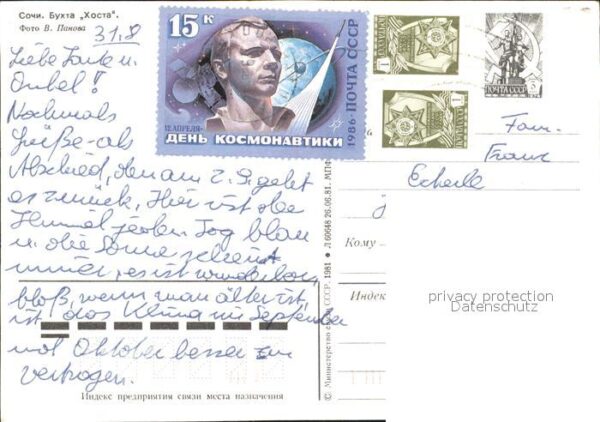 Сочи. Бухта „Хоста".
Фото В. Панова
31.8
Liebe Tante u.
Onkel!
Nochmals
Grüße als
Abschied, denn am 2.9. geht
es zurück. Hier ist der
Himmel jeden Tag blau
u. die Sonne scheint
immer, es ist wunderbar,
bloß, wenn man älter ist,
ist das Klima im September
und Oktober besser zu
vertragen.
Индекс предприятия связи места назначения
15 к
12 АПРЕЛЯ-
ДЕНЬ КОСМОНАВТИКИ
1986•ПОЧТА СССР
1
1
ПОЧТА СССР
Fam.
Franz
Кому
Индекс
© Министерство связи СССР. 1981 • Л 60648 26.06.81. МПФ
privacy protection
Datenschutz